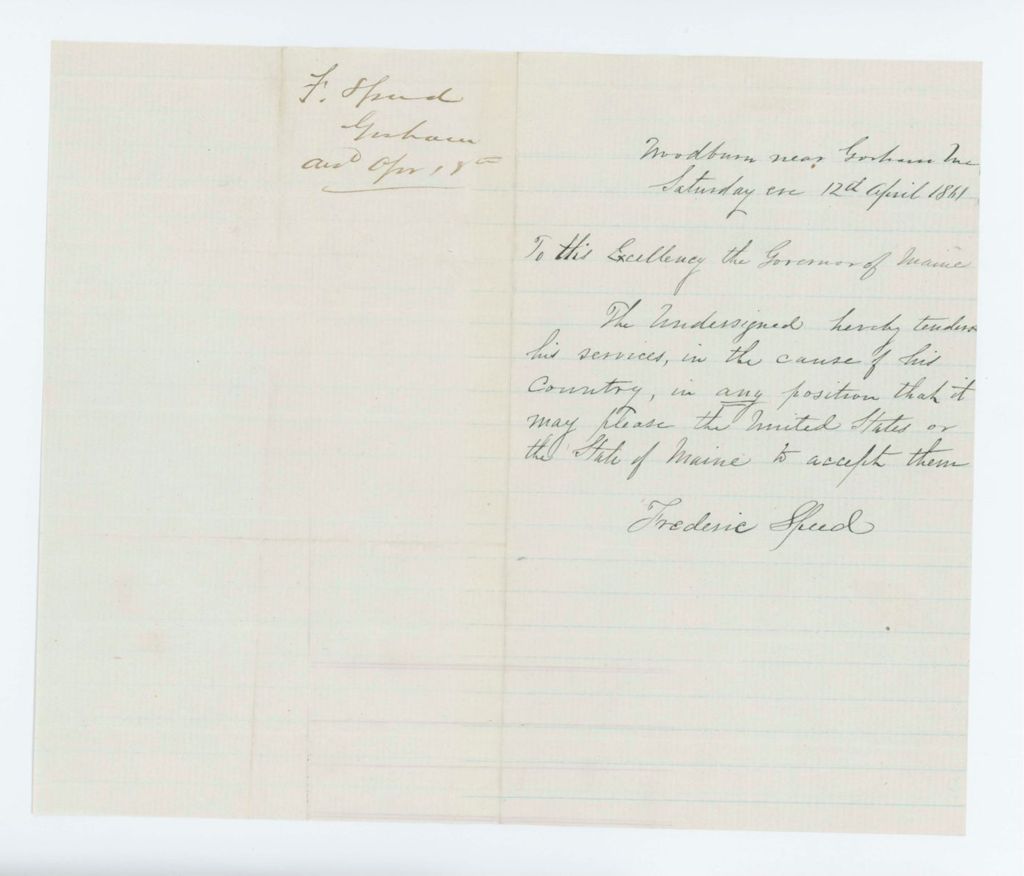 F. Speed
Gorham
ansd Apr 18th
Woodburn near Gorham Me
Saturday eve 12d April 1861
To His Excellency the Governor of Maine
The Undersigned hereby tenders
his services, in the cause of his
Country, in any position that it
may please the United States or
the State of Maine to accept them
Frederic Speed